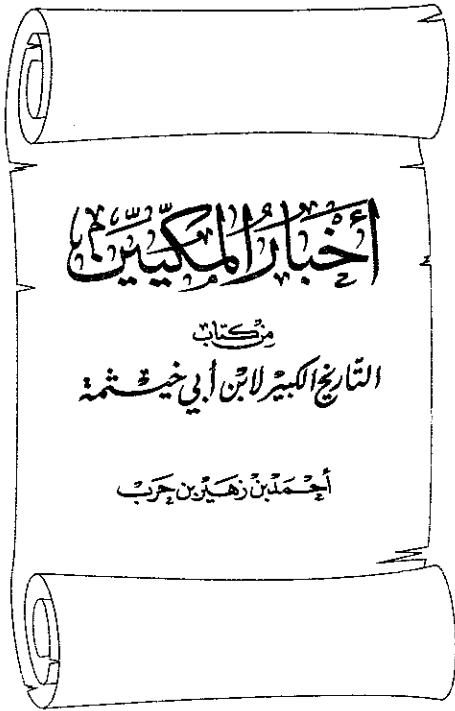 أخبار المكيين
من كتاب
التاريخ الكبير لابن أبي خيثمة
أحمد بن زهير بن حرب